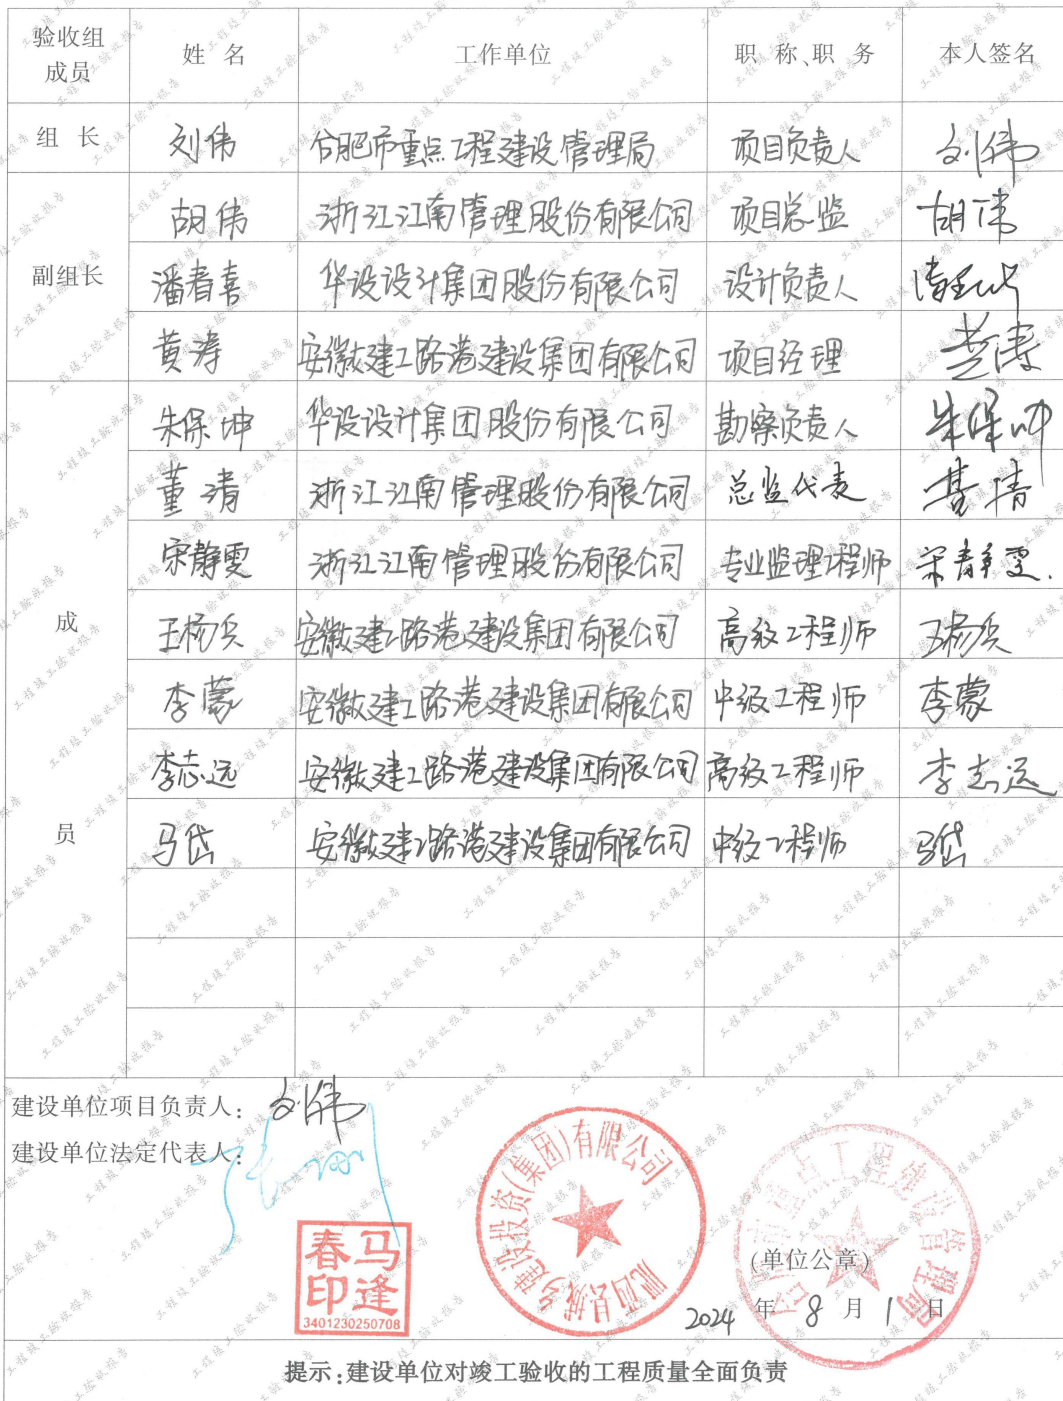 验收组成员 姓名 工作单位 职称、职务 本人签名
组长 刘伟 合肥市重点工程建设管理局 项目负责人 刘伟
副组长 胡伟 浙江江南管理股份有限公司 项目总监 胡伟
潘春喜 华设设计集团股份有限公司 设计负责人
黄涛 安徽建工路港建设集团有限公司 项目经理 黄涛
成员 朱保坤 华设设计集团股份有限公司 勘察负责人 朱保坤
董清 浙江江南管理股份有限公司 总监代表 董清
宋静雯 浙江江南管理股份有限公司 专业监理工程师 宋静雯
王杨兵 安徽建工路港建设集团有限公司 高级工程师 王杨兵
李蒙 安徽建工路港建设集团有限公司 中级工程师 李蒙
李志远 安徽建工路港建设集团有限公司 高级工程师 李志远
马岱 安徽建工路港建设集团有限公司 中级工程师 马岱
建设单位项目负责人: 刘伟
建设单位法定代表人:
肥西县城乡建设投资(集团)有限公司
合肥市重点工程建设管理局
马逢春印
3401230250708
(单位公章)
2024年8月1日
提示:建设单位对竣工验收的工程质量全面负责
工程竣工验收报告